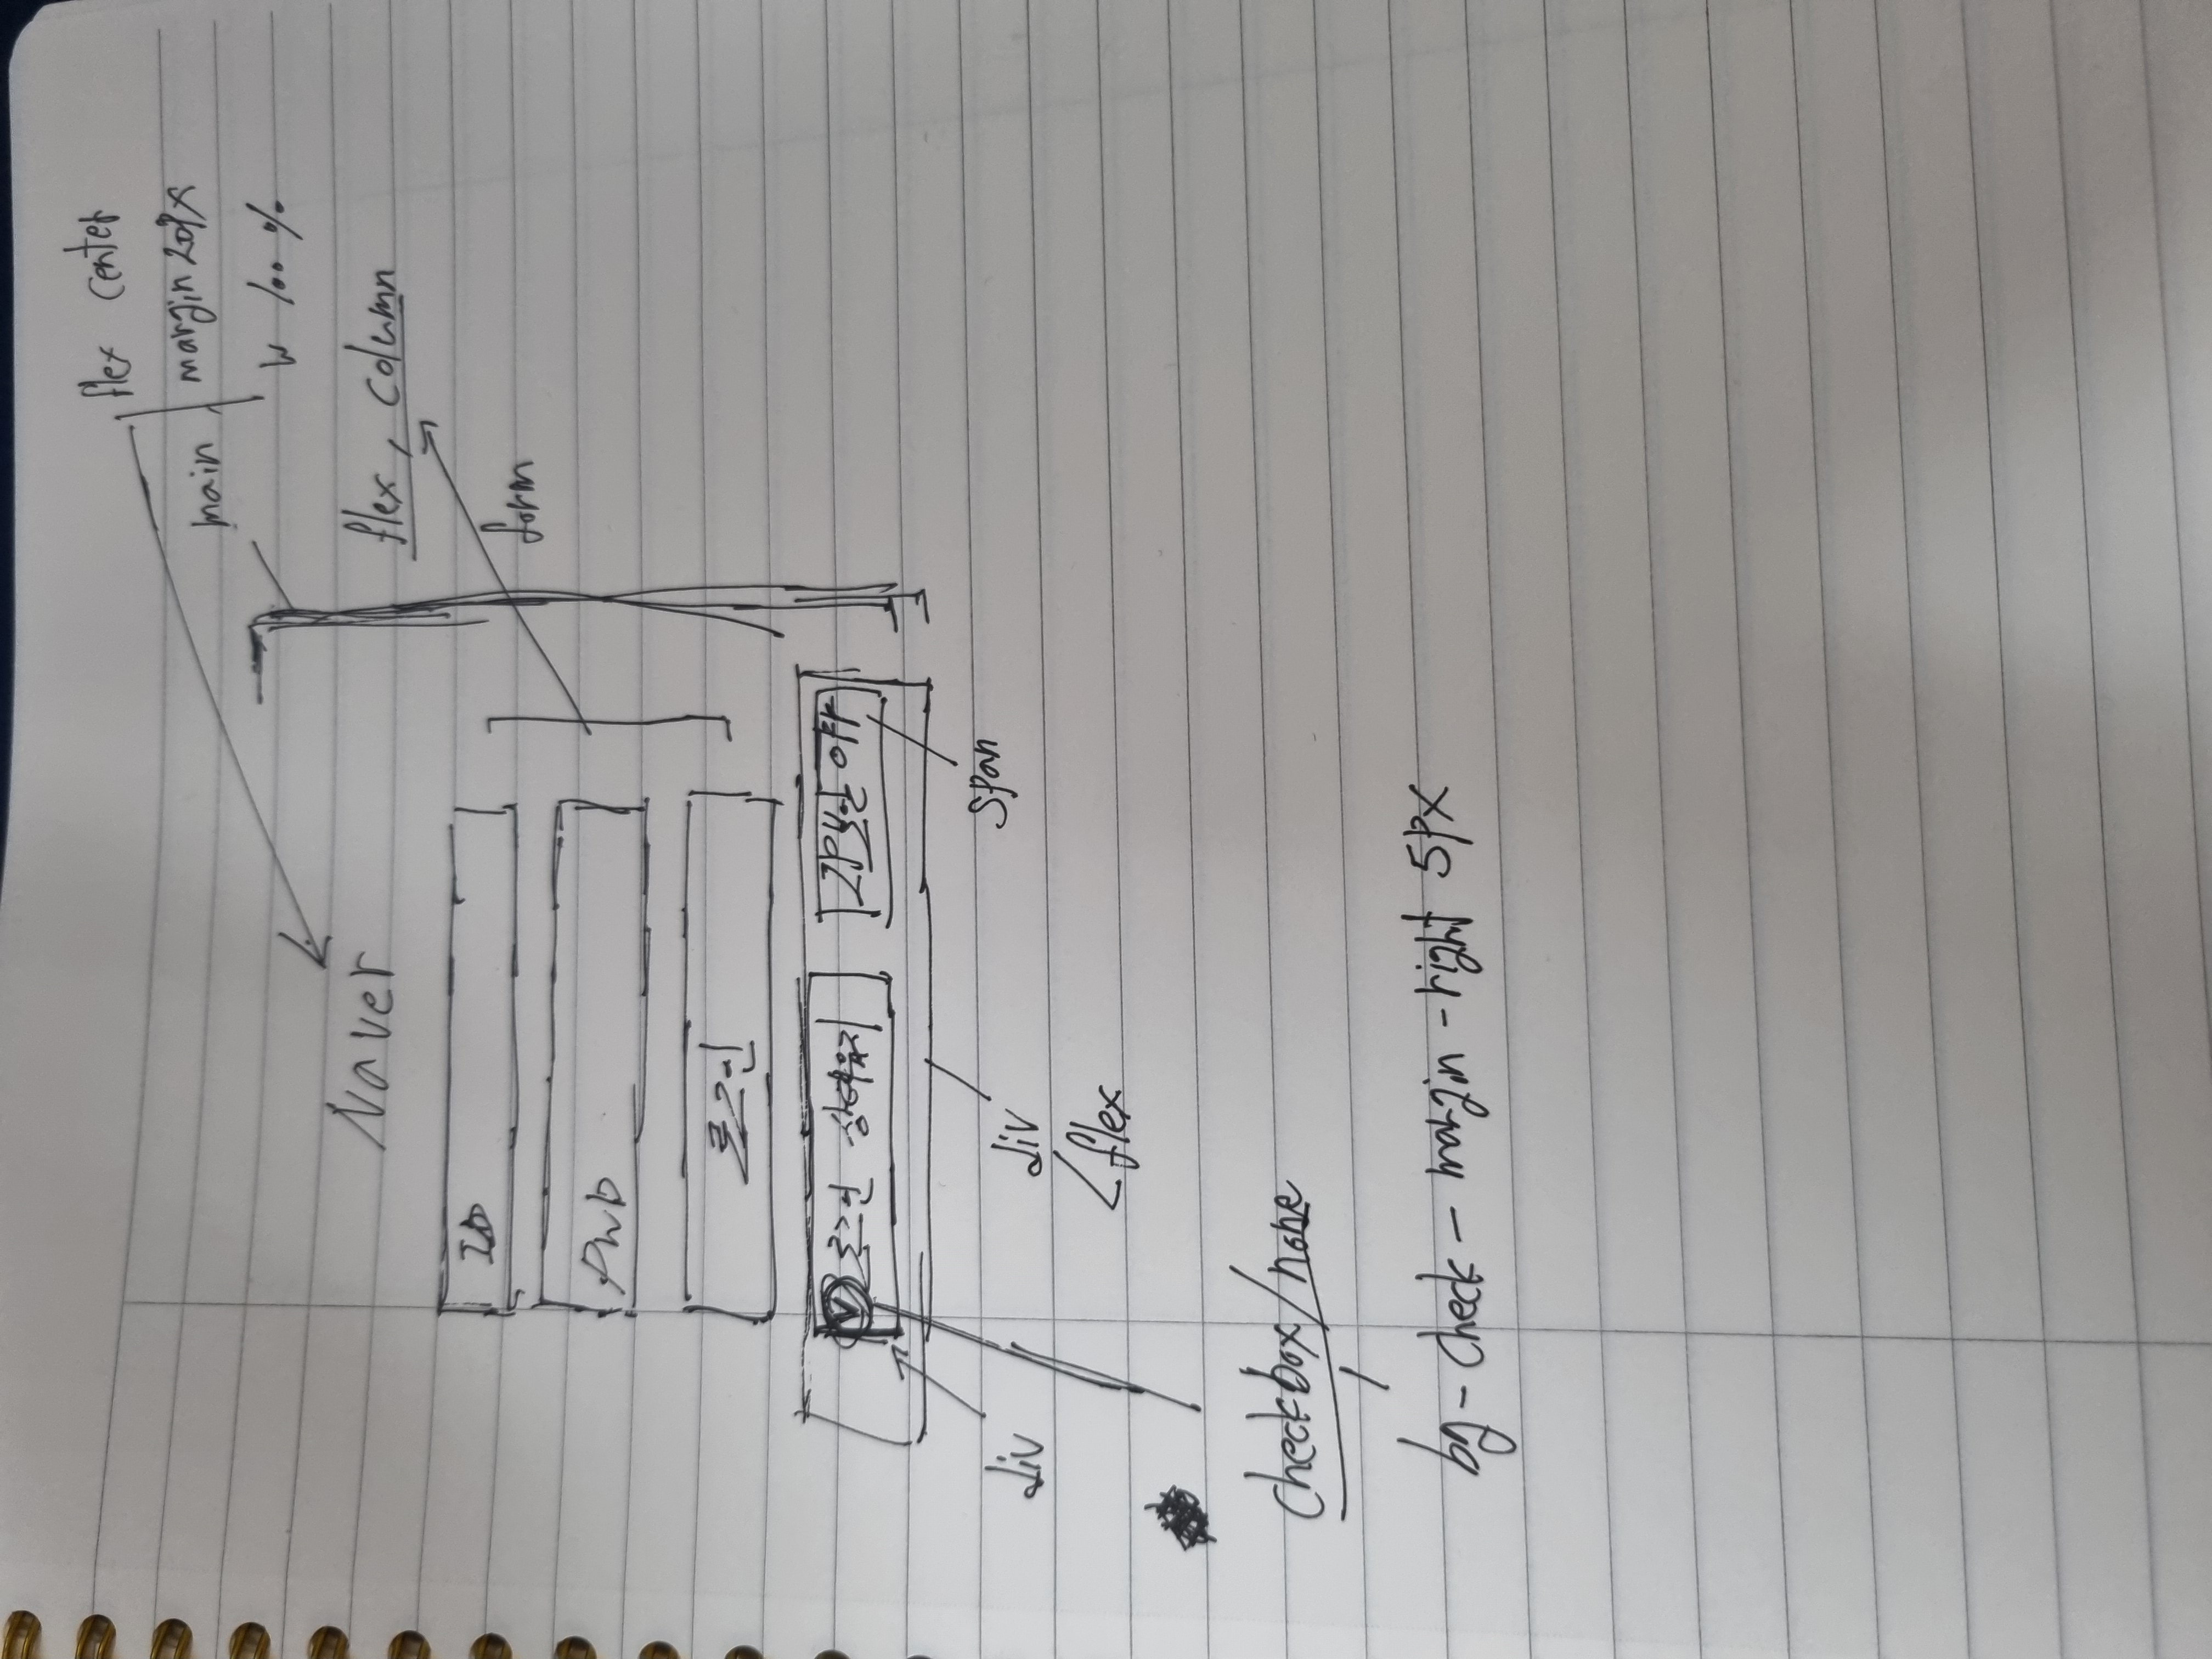 flex center
main margin 20px
w 100%
Naver
flex, column
ID
form
PWD
로그인
로그인 상태유지 IP보안 OFF
div div span
flex
checkbox/none
bg-check-margin-right 5px